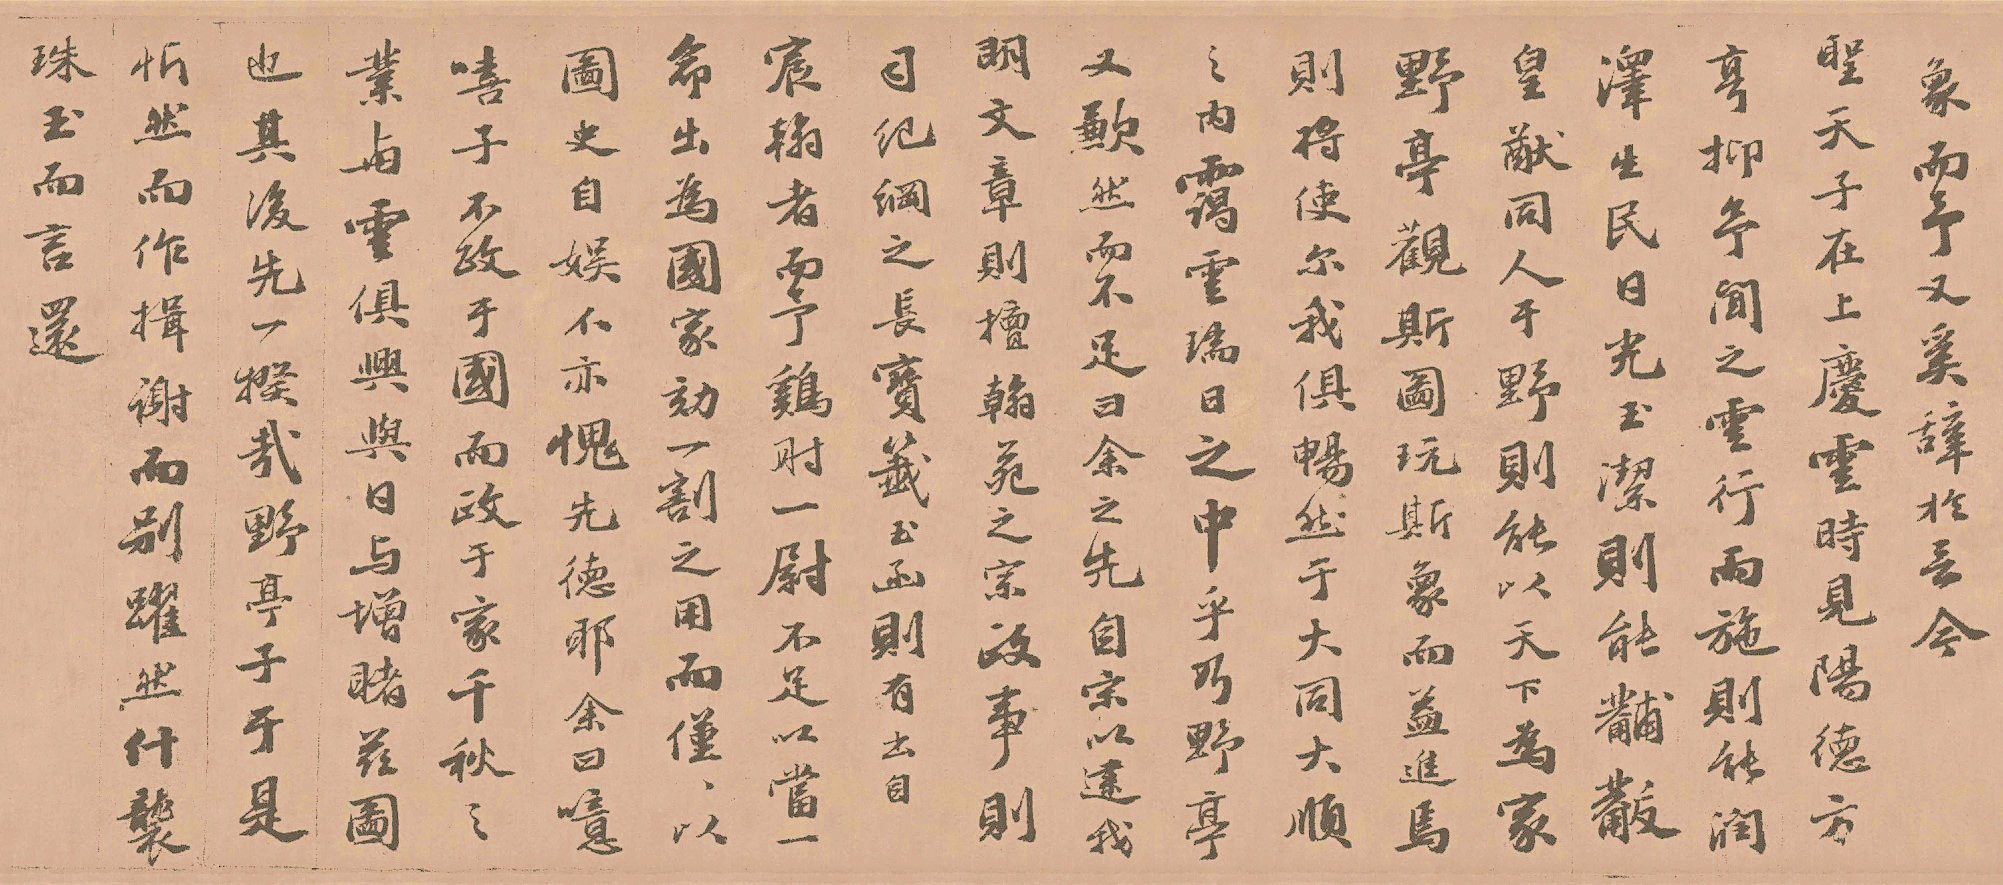 象而予又奚辭於言今
聖天子在上慶雲時見陽德方
亨抑予聞之雲行而施則能潤
澤生民日光玉潔則能黼黻
皇猷同人于野則能以天下為家
野亭觀斯圖玩斯象而益進焉
則將使尔我俱暢然于大同大順
之內靄雲瑞日之中乎乃野亭
又歉然而不足曰余之先自宗以逮我
明文章則擅翰苑之宗政事則
司紀綱之長寶籤玉函則有出自
宸翰者而予鷄肘一尉不足以當一
命出為國家効一割之用而僅、以
圖史自娛不亦愧先德耶余曰噫
嘻子不政于國而政于家千秋之
業与雲俱興與日与增睹茲圖
也其後先一揆哉野亭子于是
忻然而作揖謝而别躍然什襲
珠玉而言還